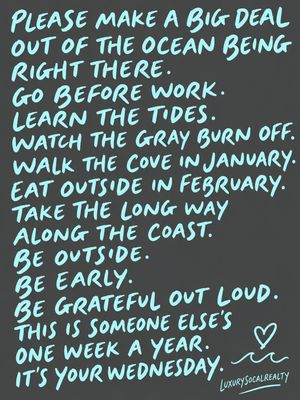 PLEASE MAKE A BIG DEAL
OUT OF THE OCEAN BEING
RIGHT THERE.
GO BEFORE WORK.
LEARN THE TIDES.
WATCH THE GRAY BURN OFF.
WALK THE COVE IN JANUARY.
EAT OUTSIDE IN FEBRUARY.
TAKE THE LONG WAY
ALONG THE COAST.
BE OUTSIDE.
BE EARLY.
BE GRATEFUL OUT LOUD.
THIS IS SOMEONE ELSE'S
ONE WEEK A YEAR.
IT'S YOUR WEDNESDAY.
LUXURYSOCALREALTY